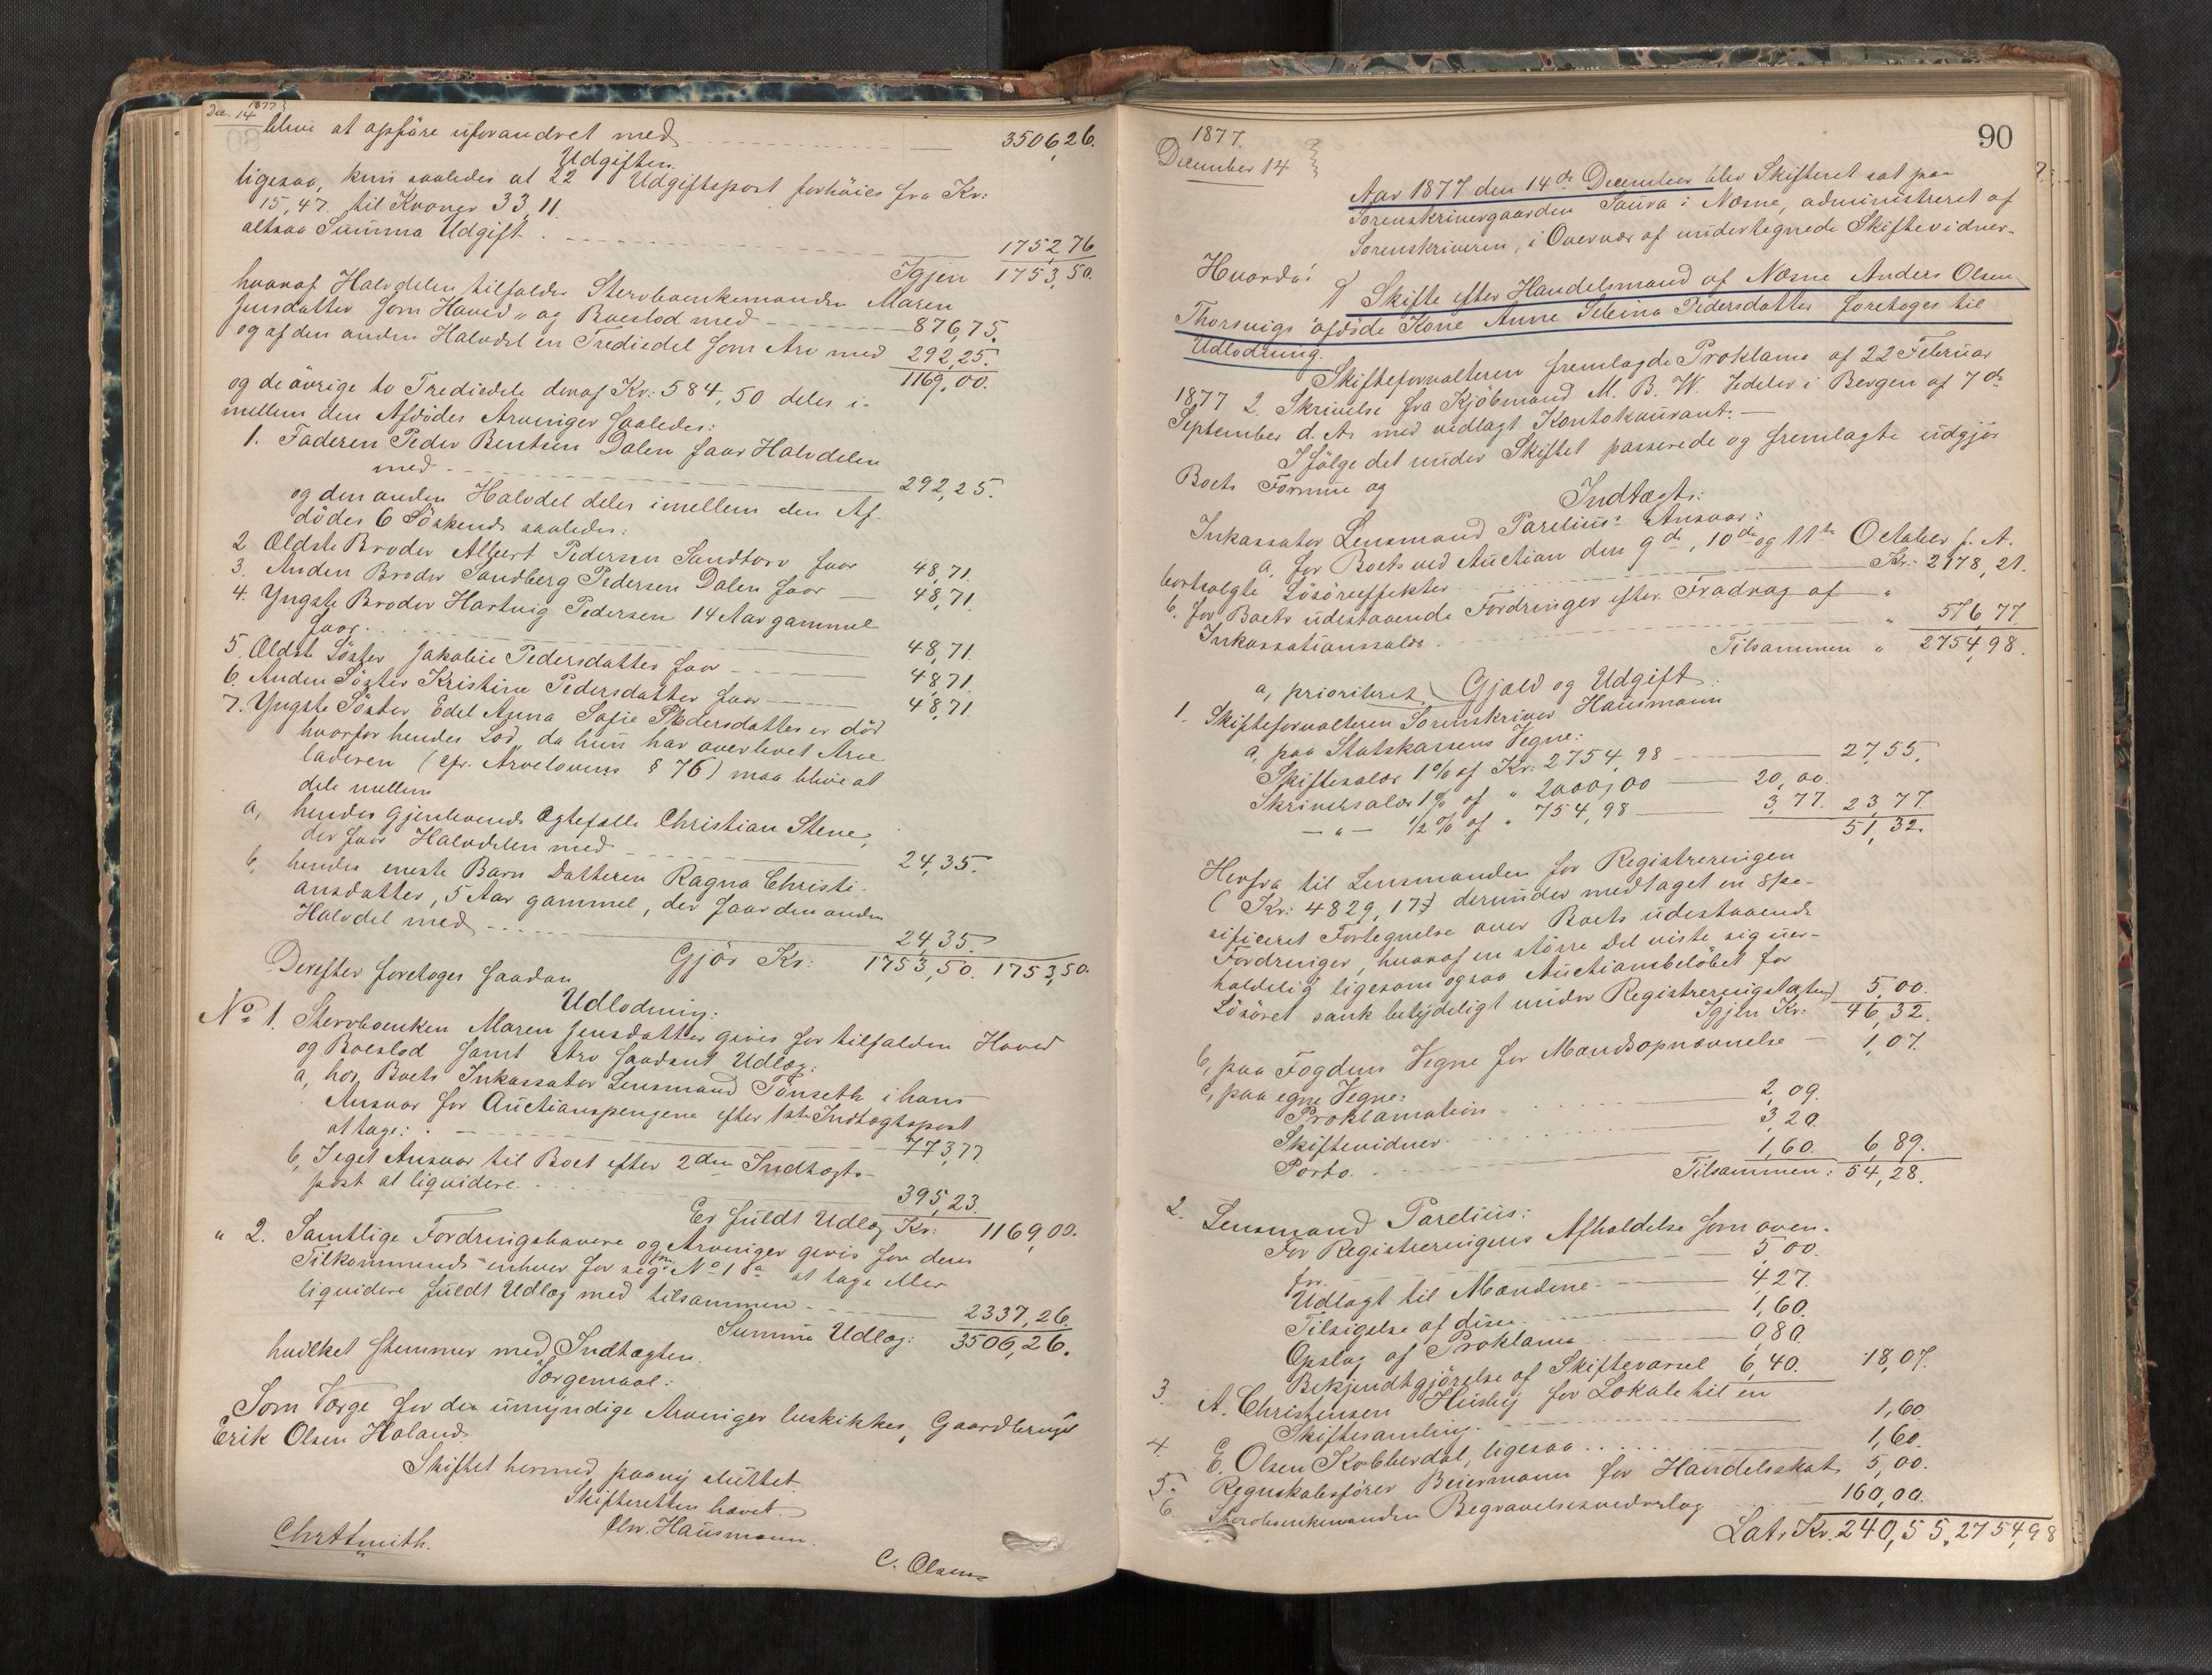 1877
Dec. 14
blive at opføre uforandret med 3506,26.
Udgiften
ligesaa, kun saaledes at 22 Udgiftspost forhöies fra Kr:
15,47. til Kroner 33,11.
altsaa Summa Udgift 1752,76
Igjen 1753,50.
hvoraf Halvdelen tilfalder Stervboenkemanden Maren
Jensdatter som Hoved- og Boeslod med 876,75.
og af den anden Halvdel en Trediedel som Arv med 292,25.
1169,00.
og de övrige to Trediedele deraf Kr: 584,50 deles i-
mellem den Afdödes Arvinger saaledes:
1. Faderen Peder Bentsen Dalen faar Halvdelen
med 292,25.
og den anden Halvdel deles imellem den Af-
dödes 6 Söskende saaledes:
2 Ældste Broder Albert Pedersen Sandtorv faar 48,71.
3. Anden Broder Sandberg Pedersen Dalen faar 48,71.
4. Yngste Broder Hartvig Pedersen 14 Aar gammel
faar 48,71.
5. Ældste Söster Jakobie Pedersdatter faar 48,71.
6. Anden Söster Kristine Pedersdatter faar 48,71.
7. Yngste Söster Edel Anna Sofie Pedersdatter er död
hvorfor hendes Lod, da hun har overlevet Arve
laderen (cfr. Arvelovens § 76) maa blive at
dele mellem
a, hendes gjenlevende Ægtefælle Christian Stene,
der faar Halvdelen med 24,35.
b, hendes eneste Barn Datteren Ragna Christi-
ansdatter, 5 Aar gammel, der faar den anden
Halvdel med 24,35.
Gjör Kr: 1753,50. 1753,50.
Derefter foretoges saadan
Udlodning:
No 1. Stervboenken Maren Jensdatter gives for tilfalden Hoved
og Boeslod samt Arv saadant Udlæg:
a, hos Boets Inkassator Lensmand Tönseth i hans
Ansvar for Auctionspengene efter 1ste Indtægtspost
at tage: 773,77.
b, I eget Ansvar til Boet efter 2den Indtægts-
post at liquidere 395,23.
Er fuldt Udlæg Kr: 1169,00.
" 2. Samtlige Fordringshavere og Arvinger gives for deres
Tilkommende enhver for sig som No 1 a at tage eller
liquidere fuldt Udlæg med tilsammen 2337,26.
Summa Udlæg: 3506,26.
hvilket stemmer med Indtægten.
Værgemaal:
Som Værge for de umyndige Arvinger beskikkes Gaardbruger
Erik Olsen Haland.
Skiftet hermed paany sluttet.
Skifteretten hævet.
Chr. Hausmann.
Chr. A Smith.
C. Olsen
90
1877.
December 14
Aar 1877 den 14de December blev Skifteret sat paa
Sorenskrivergaarden Saura i Næsne, administreret af
Sorenskriveren, i Overvær af undertegnede Skiftevidner.
Hvorda:
1) Skifte efter Handelsmand af Næsne Anders Olsen
Thorsvigs afdöde Kone Anne Sebina Pedersdatter foretoges til
Udlodning.
Skifteforvalteren fremlagde Proklama af 22 Februar
1877 2. Skrivelse fra Kjöbmand M. B. W. Vedeler i Bergen af 7de
September d. A. med vedlagt Kontokourant.
Ifölge det under Skiftet passerede og fremlagte udgjör
Boets Formue og
Indtægt:
Inkassator Lensmand Parelius' Ansvar:
a, for Boets ved Auction den 9de, 10de og 11te October f. A.
bortsolgte Lösöreeffekter Kr: 2178,21.
b, for Boets udestaaende Fordringer efter Fradrag af
Inkassationssalær " 576,77.
Tilsammen " 2754,98.
Gjæld og Udgift:
a, prioriteret
1. Skifteforvalteren Sorenskriver Hausmann
a, paa Statskassens Vegne:
Skiftesalær 1% af Kr: 2754,98 27,55.
Skriversalær 1% af " 2000,00 20,00.
— " — 1/2 % af " 754,98 3,77. 23,77
51,32.
Herfra til Lensmanden for Registreringen
(Kr: 4829,17) derunder medtaget en spe-
sificeret Fortegnelse over Boets udestaaende
Fordringer, hvoraf en större Del viste sig uer-
holdelig ligesom ogsaa Auctionsbelöbet for
Lösöret sank betydeligt under Registreringstaxten) 5,00.
Igjen Kr: 46,32.
b, paa Fogdens Vegne for Mandsopnævnelse 1,07.
c, paa egne Vegne:
Proklamation 2,09.
Skiftevidner 3,20.
Porto 1,60. 6,89.
Tilsammen: 54,28.
2. Lensmand Parelius:
For Registreringens Afholdelse som oven-
for 5,00.
Udlagt til Mændene 4,27.
Tilsigelse af disse 1,60.
Opslag af Proklama 0,80.
Bekjendtgjörelse af Skiftevarsel 6,40. 18,07.
3. A. Christensen Husby for Lokale til en
Skiftesamling 1,60.
4. E. Olsen Kobberdal, ligesaa 1,60.
5. Regnskabsförer Beiermann for Handelsskat 5,00.
6. Stervboenkemanden Begravelsesvederlag 160,00.
Lat. Kr. 240,55. 2754,98